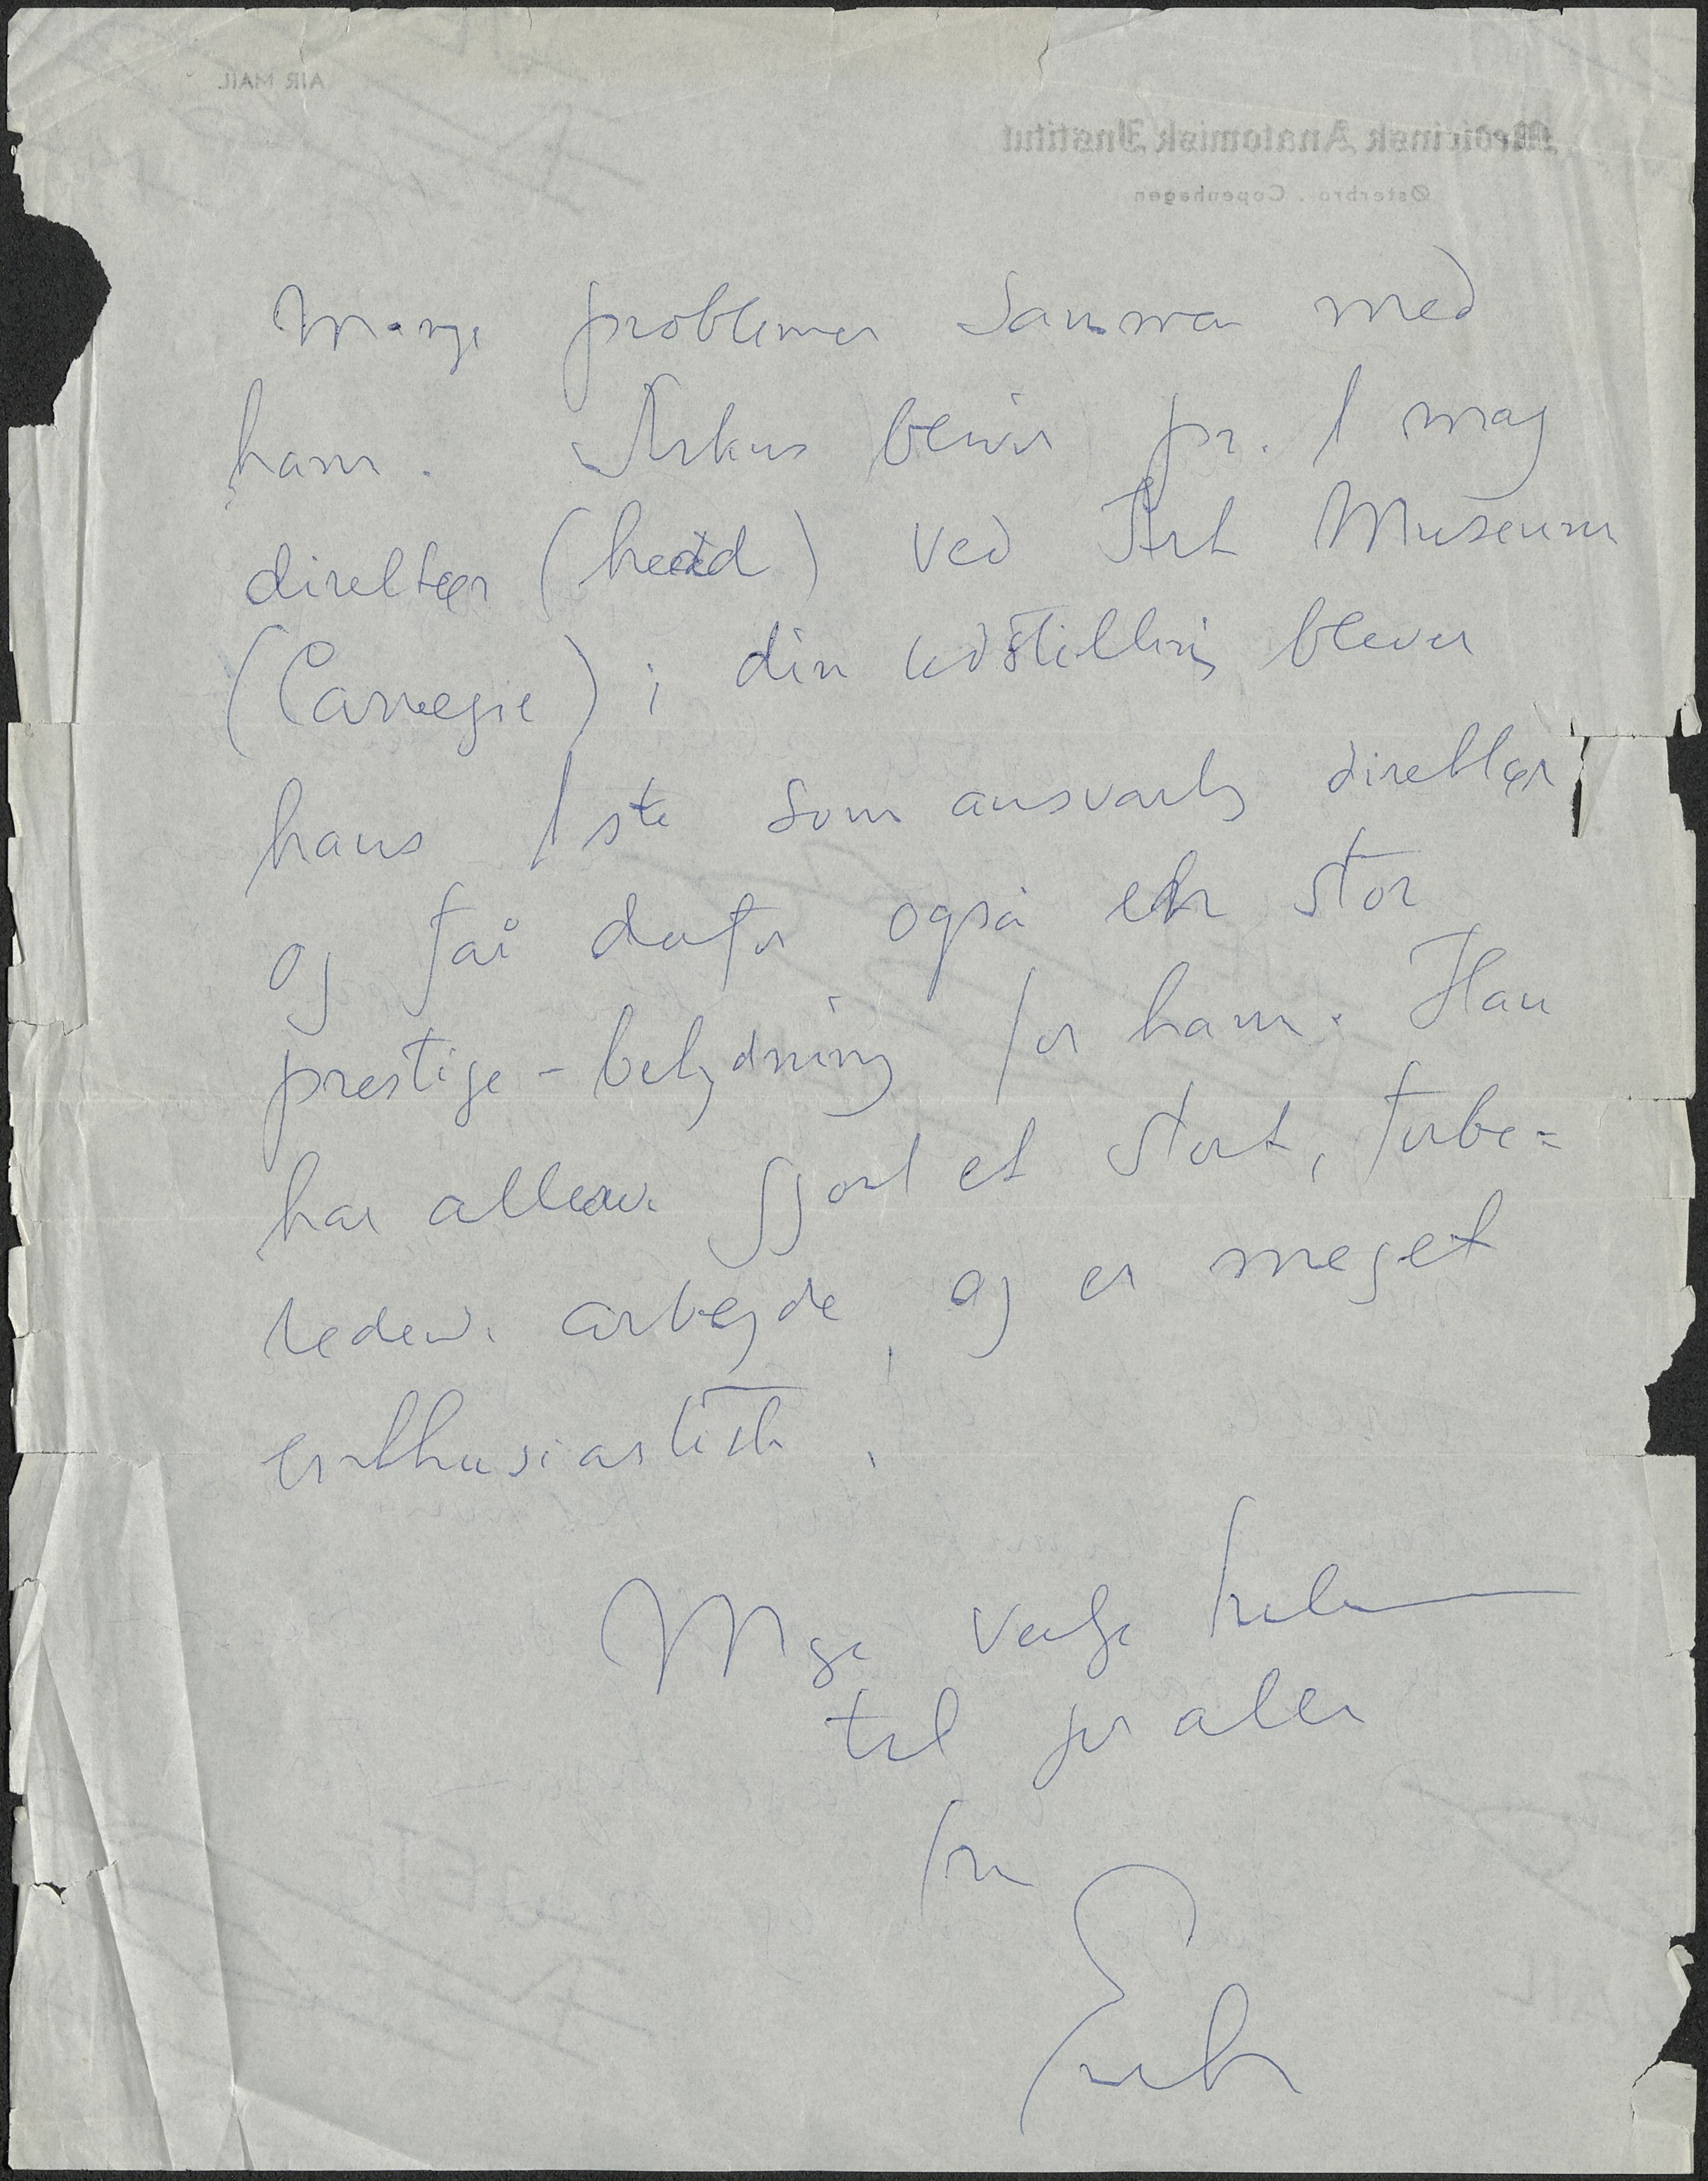 Mange problemer sammen med
ham. Arkus bliver pr. 1 maj
direktør (head) ved Art Museum
(Carnegie); din udstilling bliver
hans 1ste som ansvarlig direktør
og får derfor også en stor
prestige-betydning for ham. Han
har allerede gjort et stort, forbe=
redende arbejde, og er meget
enthusiastisk.
Mge venlige hilsner
til jer alle
fra
Erik